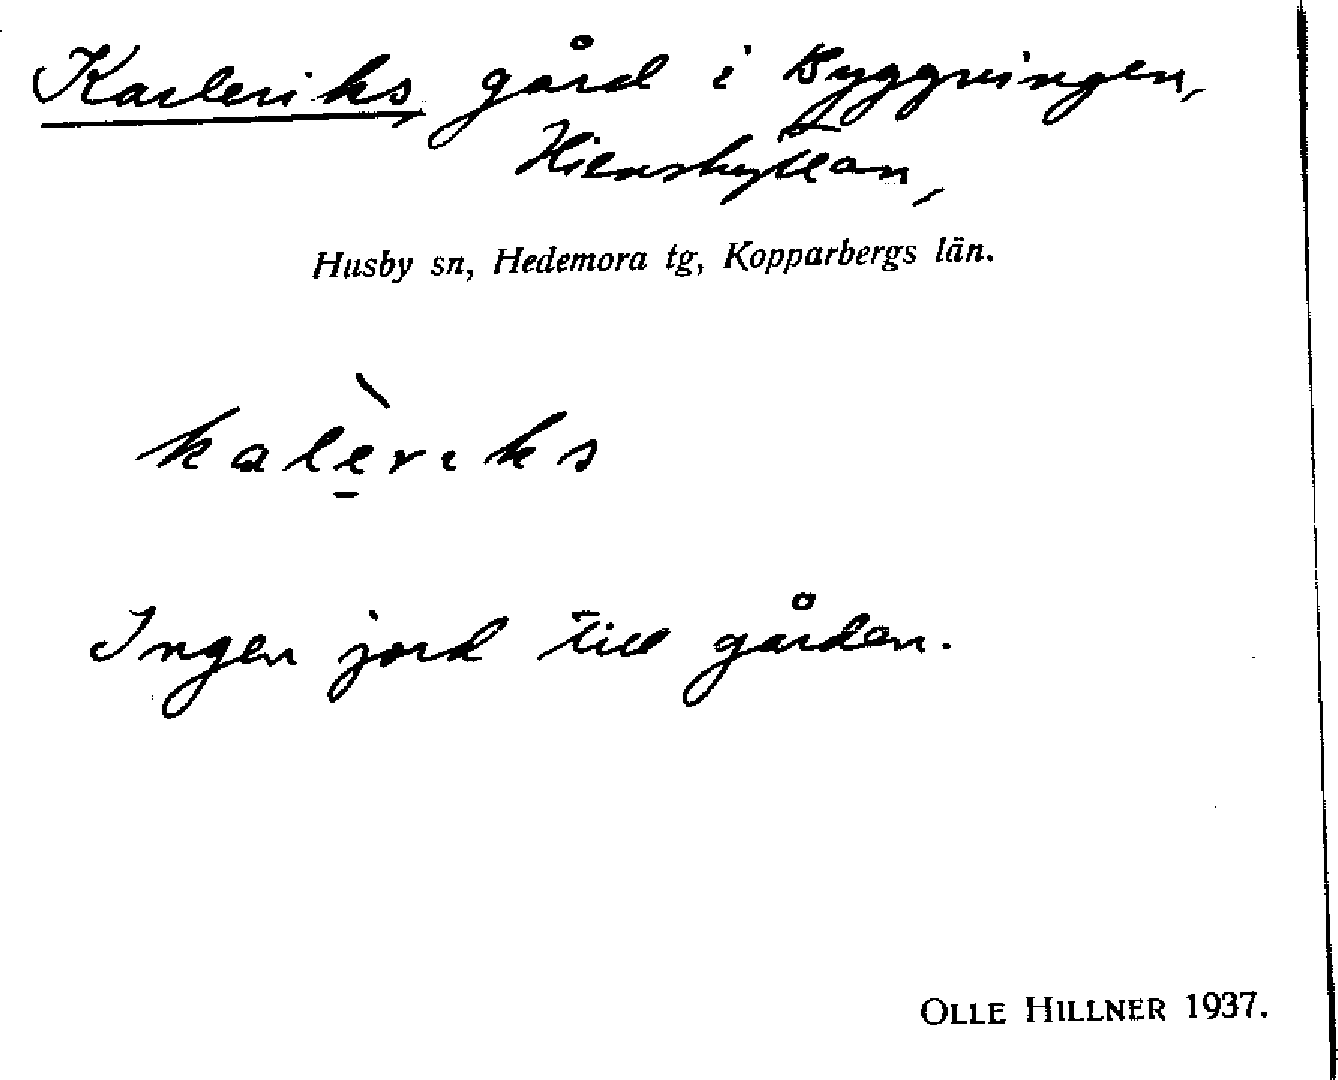 Karleriks, gård i Byggningen,
Hienshyttan,
Husby sn, Hedemora tg, Kopparbergs län.
kalè̱rıks
Ingen jord till gården.
OLLE HILLNER 1937.